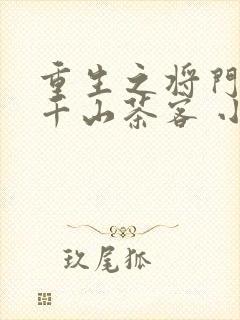 重生之将门
千山茶客 小
玖尾狐